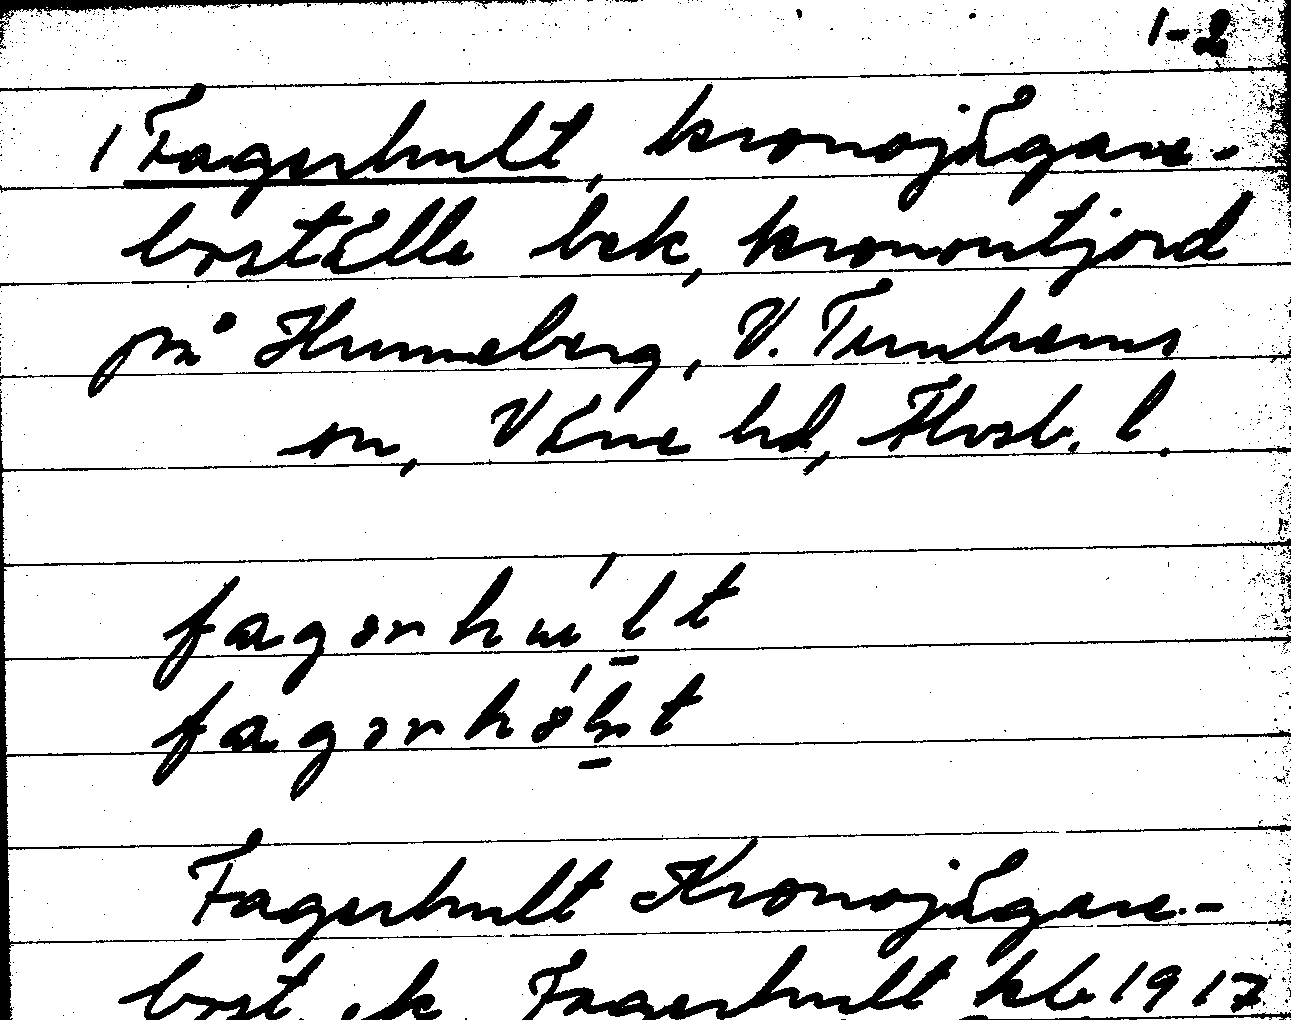 1-2
1 Fagerhult, kronojägare-
boställe bek, kronontjord
på Hunneberg, V. Tunhems
sn, Väne hd, Älvsb. l.
fagərhu´l̠t
fagərhö´l̠t
Fagerhult Kronojägare-
bost. ek Fagerhult kb 1917